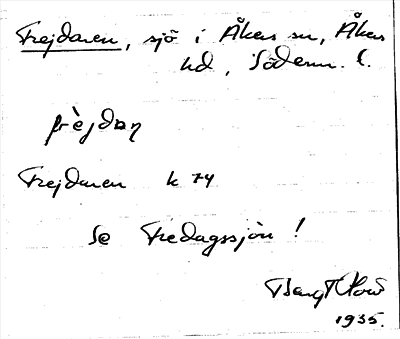 Frejdaren, sjö i Åkers sn, Åkers
hd, Söderm. l.
frèjdaṇ
Frejdaren k 74
Se Fredagssjön!
Bengt
1935.